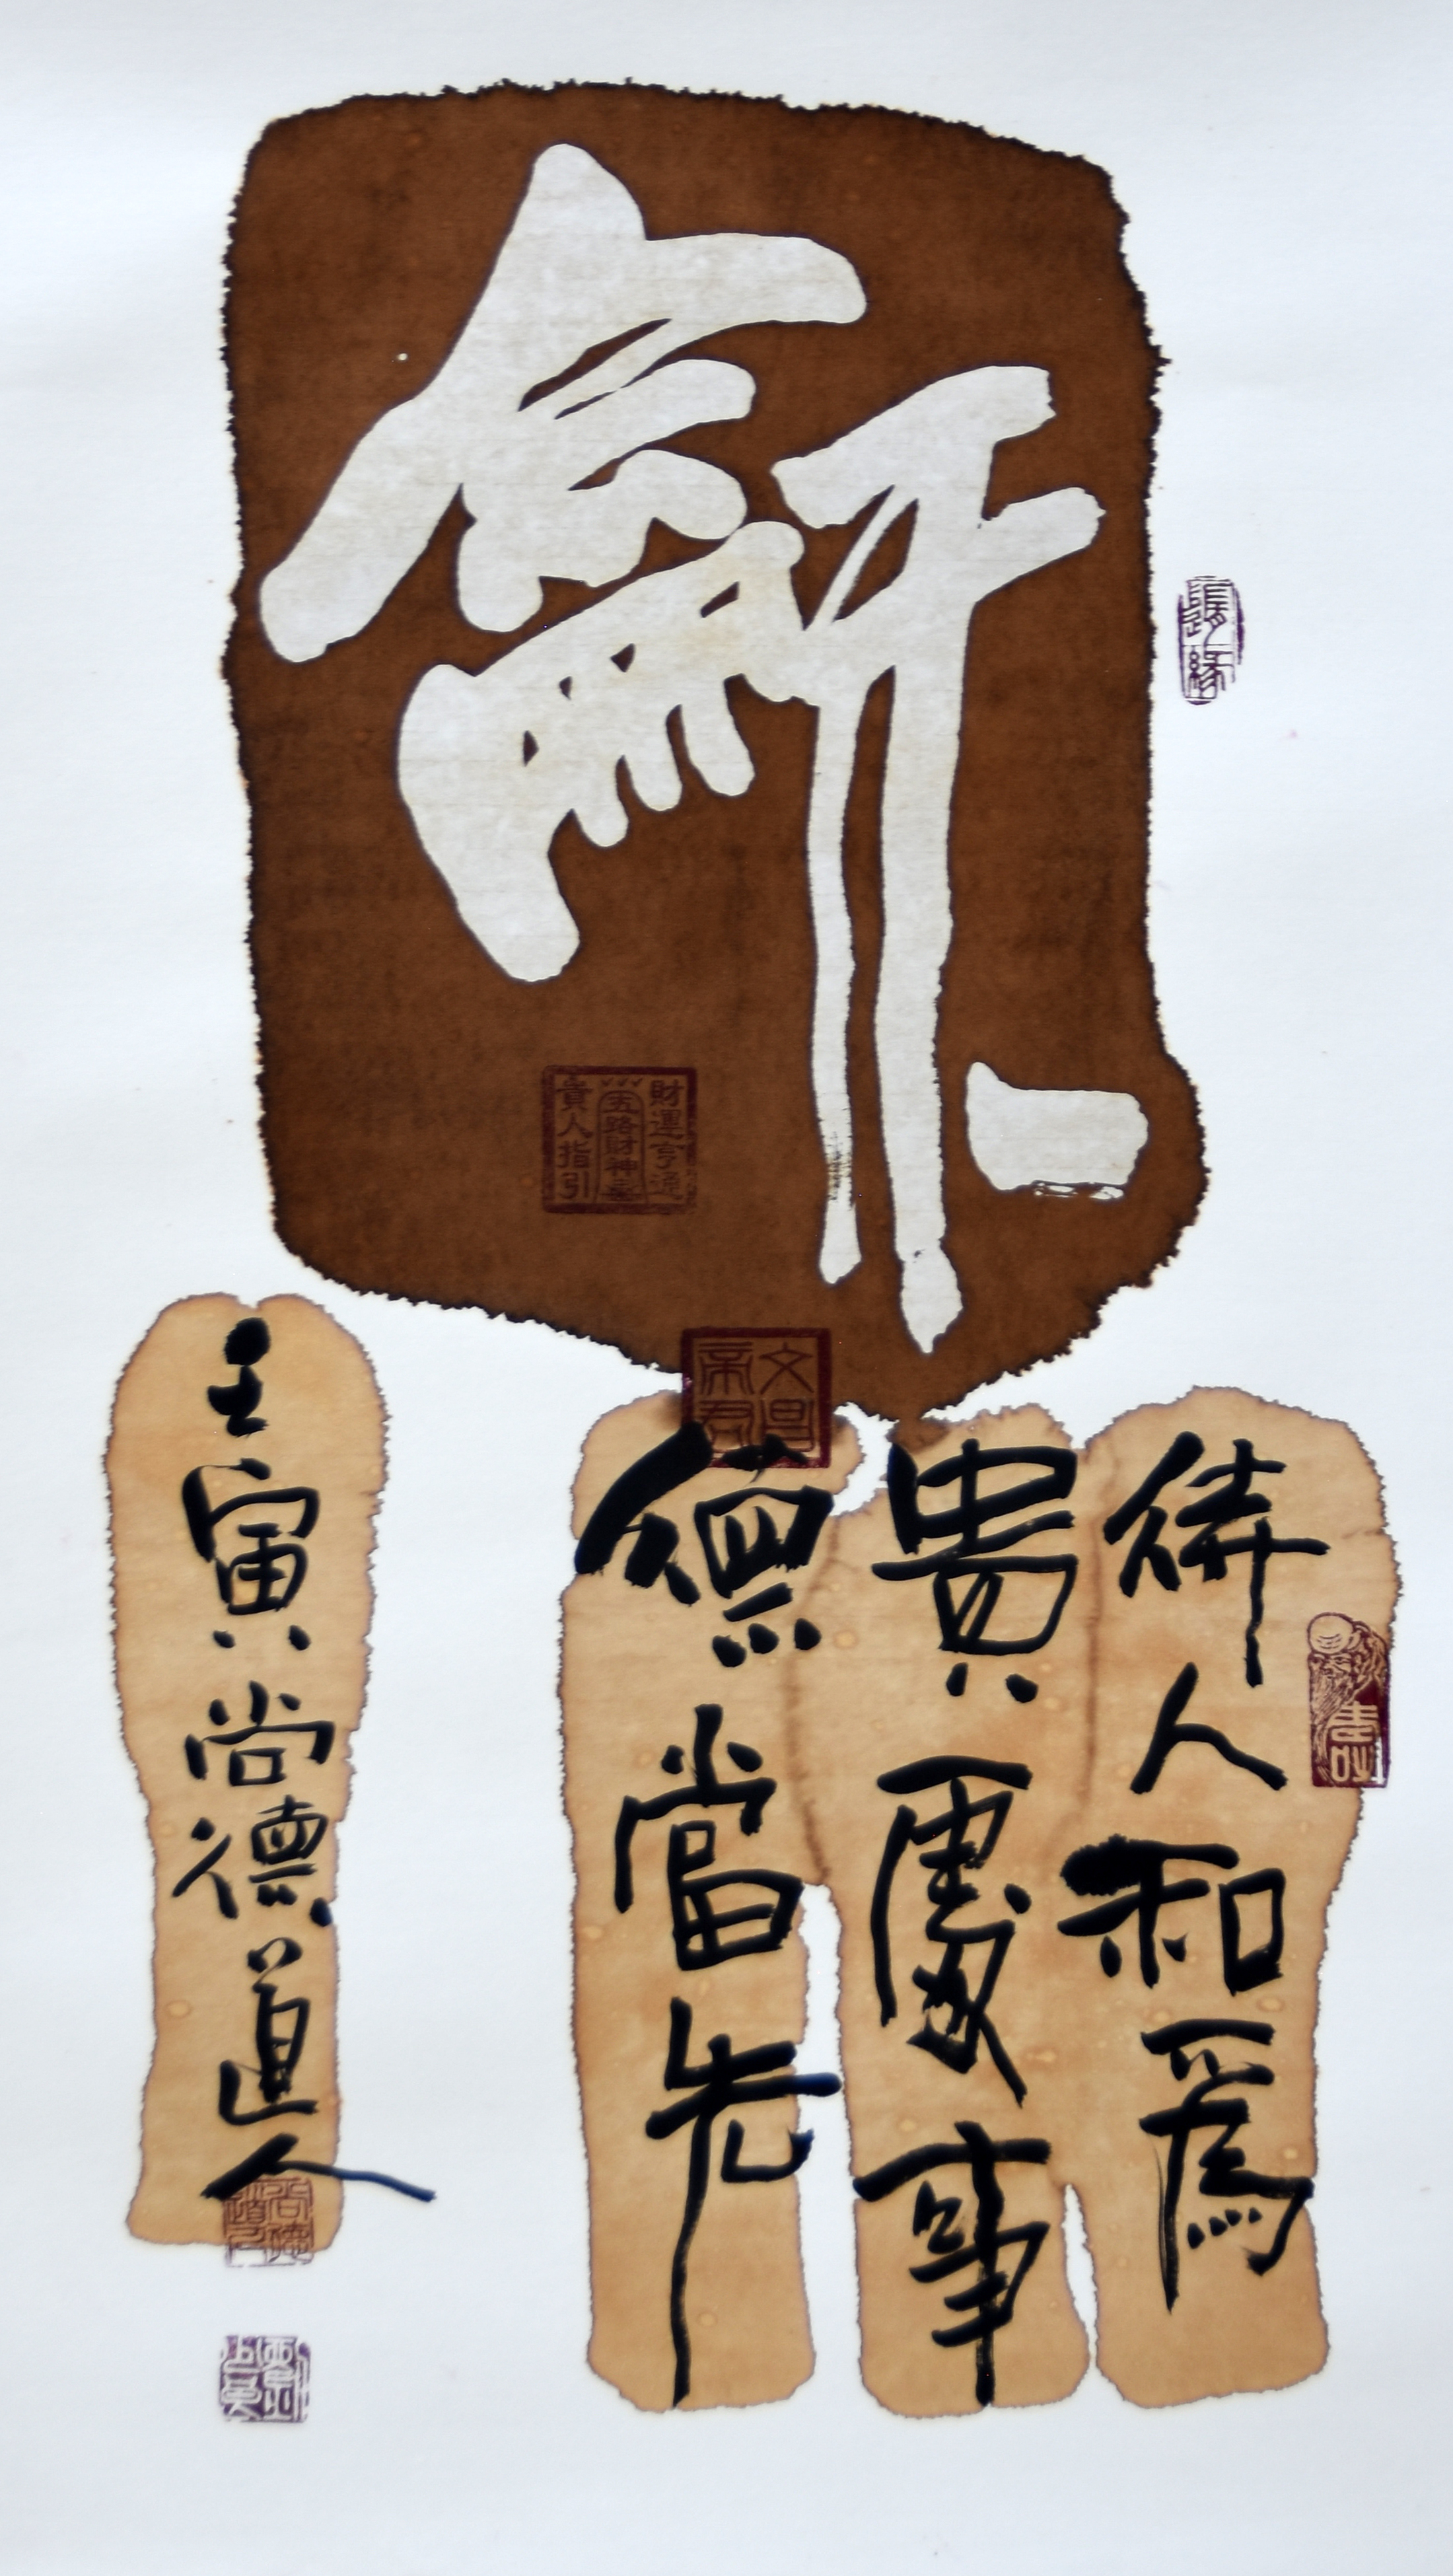 龢
隨緣
財運亨通
五路財神
貴人指引
文昌帝君
待人和爲
貴處事
德當先
壬寅尚德道人
尚德道人